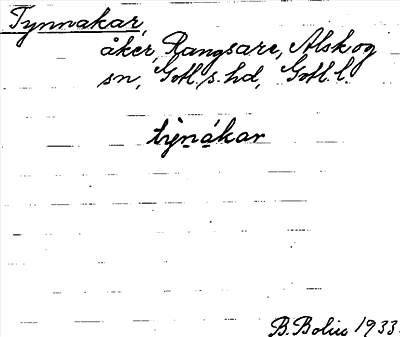 Tynnakar,
åker, Rangsare, Alskog
sn, Gotl. s. hd, Gotl. l.
tỳnákar
B. Bolin 1933.